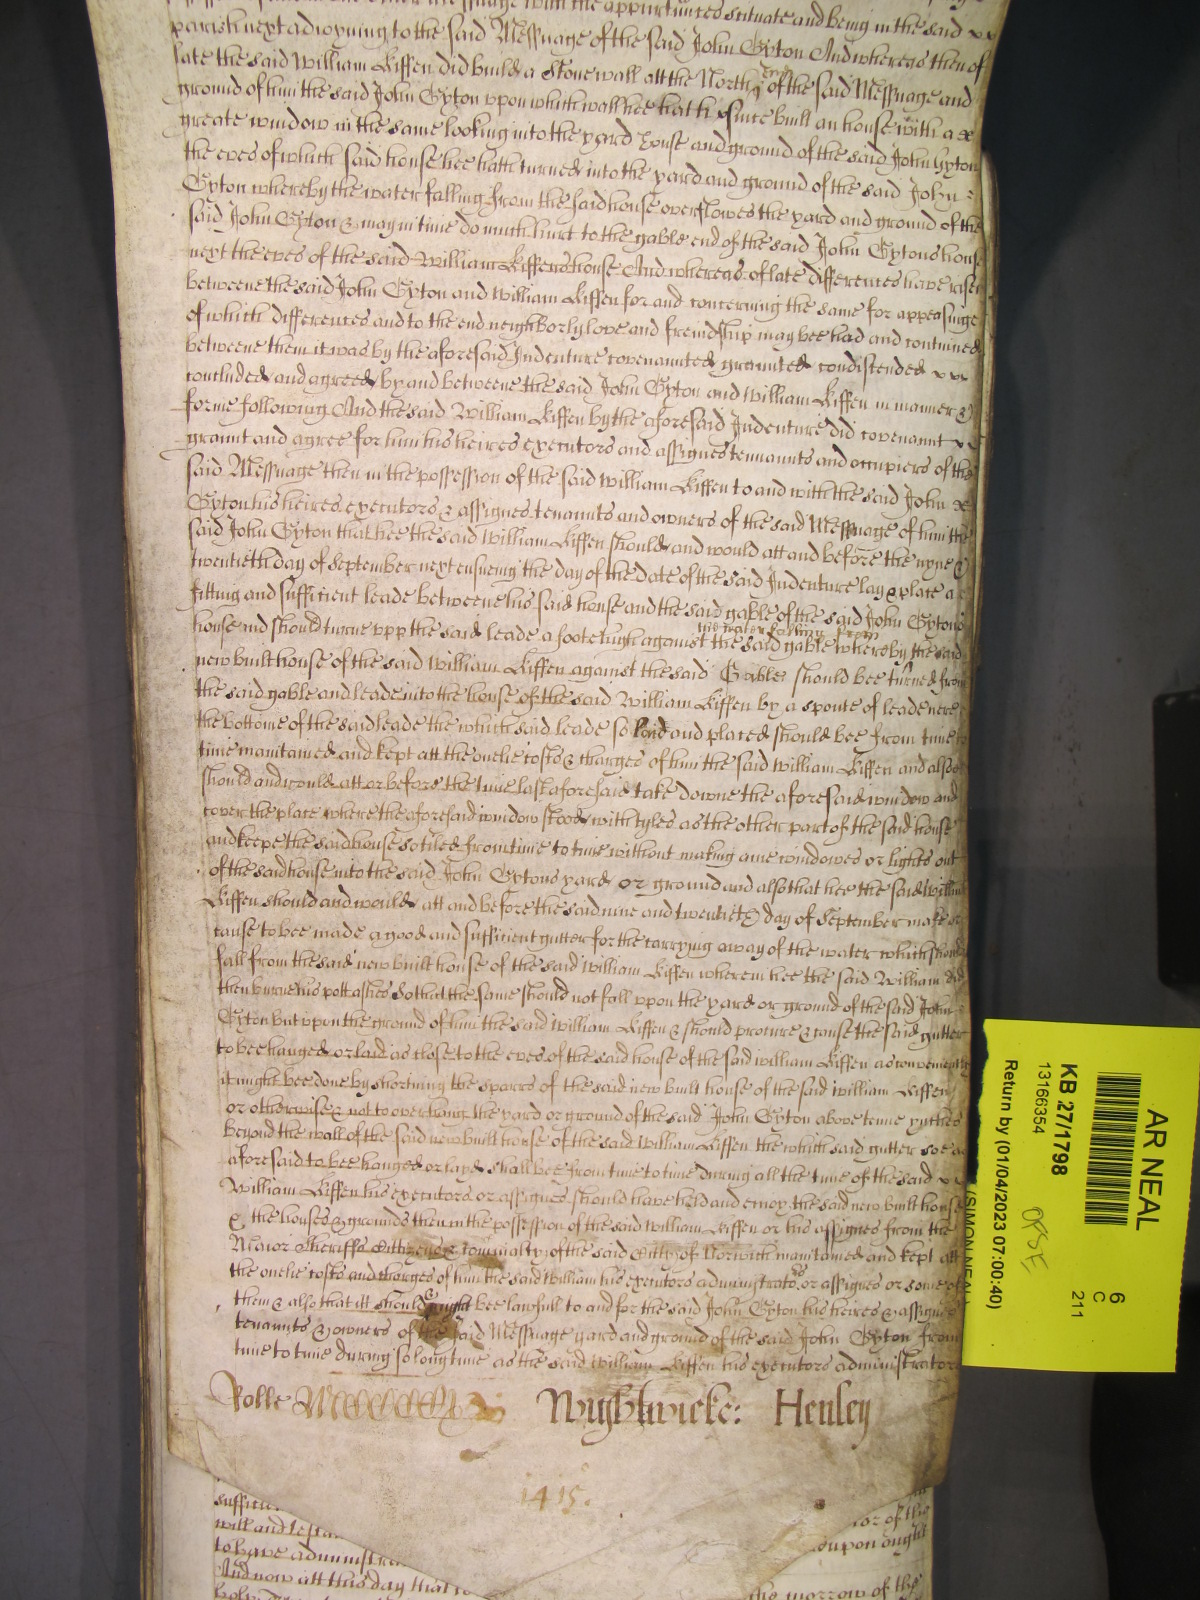 messuage with the appurtences scituate and being in the said
parish next adioyning to the said Messuage of the said John Gyton And whereas then of
late the said William Kiffen did build a Stone wall att the North end of the said Messuage and
ground of him the said John Gyton vpon which wall hee hath since built an house with a
greate window in the same looking into the yard house and ground of the said John Gyton
the eves of which said house hee hath turned into the yard and ground of the said John
Gyton whereby the water falling from the said house overflowes the yard and ground of the
said John Gyton & may in time do much hurt to the gable end of the said John Gytons house
next the eves of the said William Kiffens house And whereas of late differences have risen
betweene the said John Gyton and William Kiffen for and concerning the same for appeasinge
of which differences and to the end neighborly love and freindship may bee had and continued
betweene them it was by the aforesaid Indenture covenannted graunted condistended
concluded and agreed by and betweene the said John Gyton and William Kiffen in manner &
forme following And the said William Kiffen by the aforesaid Indenture did covenannt
graunt and agree for him his heires executors and assignes tennannts and occupiers of the
said Messuage then in the possession of the said William Kiffen to and with the said John
Gyton his heires executors & assignes tenannts and owners of the said Messuage of him the
said John Gyton that hee the said William Kiffen should and would att and before the nyne &
twentieth day of September next ensueing the day of the date of the said Indenture lay & place a
fitting and sufficient leade betweene his said house and the said gable of the said John Gytons
house and should turne vpp the said leade a foote high against the said gable whereby the said
the water falling from
new built house of the said William Kiffen against the said Gable should bee turned from
the said gable and leade into the house of the said William Kiffen by a spoute of leade nere
the bottome of the said leade the which said leade so laid and placed should bee from time to
time maintained and kept att the onelie costs & charges of him the said William Kiffen and alsoe
should and would att or before the time last aforesaid take downe the aforesaid window and
cover the place where the aforesaid window stood with tyles as the other part of the said house
and keepe the said house so tiled from time to time without making anie windowes or lights out
of the said house into the said John Gytons yard or ground and also that hee the said William
Kiffen should and would att and before the said nine and twentieth day of September make or
cause to bee made a good and sufficient gutter for the carrying away of the water which should
fall from the said new built house of the said William Kiffen wherein hee the said William did
then burne his pott ashes So that the same should not fall vpon the yard or ground of the said John
Gyton but vpon the ground of him the said William Kiffen & should procure & cause the said gutter
to bee hanged or laid as close to the eves of the said house of the said William Kiffen as conveniently
it might bee done by shortning the sparrs of the said new built house of the said William Kiffen
or otherwise & not to overhang the yard or ground of the said John Gyton above tenne ynches
beyond the wall of the said new built house of the said William Kiffen the which said gutter soe as
aforesaid to bee hanged or layd shall bee from time to time during all the time of the said
William Kiffen his executors or assignes should have held and enioy the said new built house
& the houses & grounds then in the possession of the said William Kiffen or his assignes from the
Maior Sheriffs Cittizens & Comminalty of the said Citty of Norwich maintained and kept att
the onelie costs and charges of him the said William his executors administrators or assignes or some of
them & also that itt should & might bee lawfull to and for the said John Gyton his heires & assignes
tenannts & owners of the said Messuage yard and ground of the said John Gyton from
time to time during so long time as the said William Kiffen his executors administrators
Rolle Wightwicke: Henley
1415.
suffici
will and testa
to have administra
And now att this day that is
or of the
upon ought
the morrow of the
AR NEAL
6
C
211
KB 27/1798
13166354
Return by (01/04/2023 07:00:40)
(SIMON NEAL)